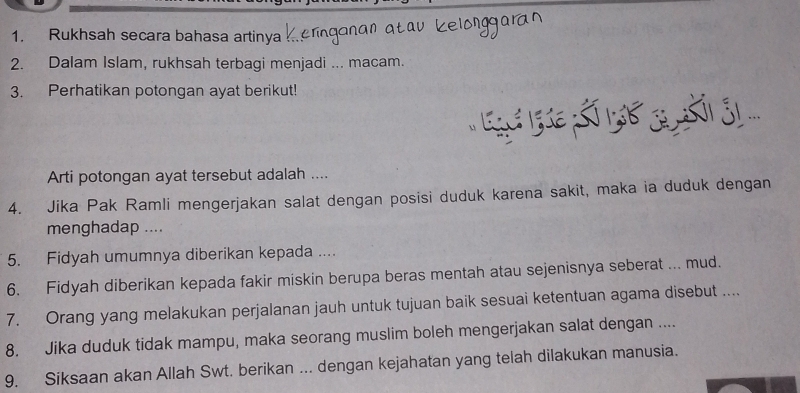 1. Rukhsah secara bahasa artinya ... keringanan atau kelonggaran
2. Dalam Islam, rukhsah terbagi menjadi ... macam.
3. Perhatikan potongan ayat berikut!
... اِنَّ الْكٰفِرِيْنَ كَانُوْا لَكُمْ عَدُوًّا مُّبِيْنًا
Arti potongan ayat tersebut adalah ....
4. Jika Pak Ramli mengerjakan salat dengan posisi duduk karena sakit, maka ia duduk dengan
menghadap ....
5. Fidyah umumnya diberikan kepada ....
6. Fidyah diberikan kepada fakir miskin berupa beras mentah atau sejenisnya seberat ... mud.
7. Orang yang melakukan perjalanan jauh untuk tujuan baik sesuai ketentuan agama disebut ....
8. Jika duduk tidak mampu, maka seorang muslim boleh mengerjakan salat dengan ....
9. Siksaan akan Allah Swt. berikan ... dengan kejahatan yang telah dilakukan manusia.